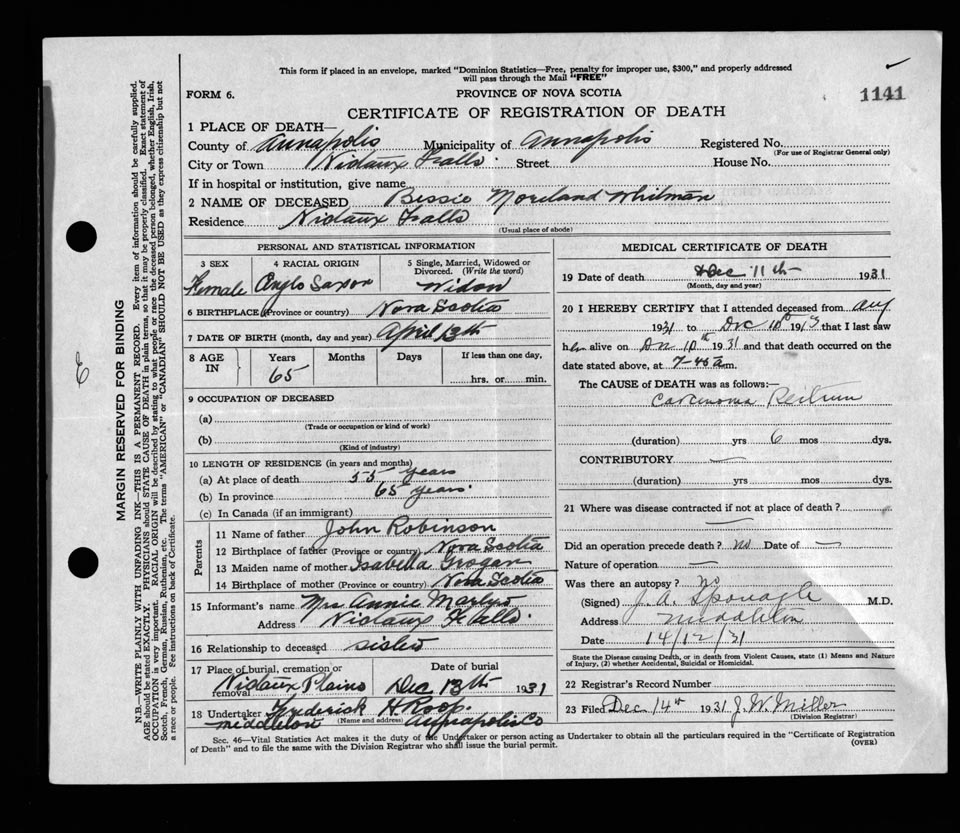 This form if placed in an envelope, marked "Dominion Statistics—Free, penalty for improper use, $300," and properly addressed
will pass through the Mail "FREE"
FORM 6.
PROVINCE OF NOVA SCOTIA
1141
CERTIFICATE OF REGISTRATION OF DEATH
1 PLACE OF DEATH—
County of Annapolis Municipality of Annapolis Registered No.
(For use of Registrar General only)
City or Town Nictaux Falls Street House No.
If in hospital or institution, give name
2 NAME OF DECEASED Bessie Moreland Whitman
Residence Nictaux Falls
(Usual place of abode)
PERSONAL AND STATISTICAL INFORMATION
3 SEX
Female
4 RACIAL ORIGIN
Anglo Saxon
5 Single, Married, Widowed or
Divorced. (Write the word)
Widow
6 BIRTHPLACE (Province or country) Nova Scotia
7 DATE OF BIRTH (month, day and year) April 13th
8 AGE IN
Years
65
Months
Days
If less than one day,
hrs. or min.
9 OCCUPATION OF DECEASED
(a)
(Trade or occupation or kind of work)
(b)
(Kind of industry)
10 LENGTH OF RESIDENCE (in years and months)
(a) At place of death 55 years
(b) In province 65 years
(c) In Canada (if an immigrant)
Parents
11 Name of father John Robinson
12 Birthplace of father (Province or country) Nova Scotia
13 Maiden name of mother Isabella Grogan
14 Birthplace of mother (Province or country) Nova Scotia
15 Informant's name Mrs Annie
Address Nictaux Falls
16 Relationship to deceased sister
17 Place of burial, cremation or
removal Nictaux Plains
Date of burial
Dec 13th 1931
18 Undertaker Frederick H Roop.
(Name and address)
Middleton Annapolis Co
MEDICAL CERTIFICATE OF DEATH
19 Date of death Dec 11th 1931
(Month, day and year)
20 I HEREBY CERTIFY that I attended deceased from Aug
1931 to Dec 10th 193 that I last saw
her alive on Dec 10th 1931 and that death occurred on the
date stated above, at 7-45 a m.
The CAUSE of DEATH was as follows:—
Carcinoma
(duration) yrs 6 mos dys.
CONTRIBUTORY —
(duration) yrs mos dys.
21 Where was disease contracted if not at place of death? —
Did an operation precede death? no Date of —
Nature of operation —
Was there an autopsy? no
(Signed) J. A. Sponagle M.D.
Address Middleton
Date 14/12/31
State the Disease causing Death, or in death from Violent Causes, state (1) Means and Nature
of Injury, (2) whether Accidental, Suicidal or Homicidal.
22 Registrar's Record Number
23 Filed Dec 14th 1931 J. W. Miller
(Division Registrar)
Sec. 46—Vital Statistics Act makes it the duty of the Undertaker or person acting as Undertaker to obtain all the particulars required in the "Certificate of Registration
of Death" and to file the same with the Division Registrar who shall issue the burial permit.
(OVER)
MARGIN RESERVED FOR BINDING
N.B.—WRITE PLAINLY WITH UNFADING INK—THIS IS A PERMANENT RECORD. Every item of information should be carefully supplied.
AGE should be stated EXACTLY. PHYSICIANS should STATE CAUSE OF DEATH in plain terms, so that it may be properly classified. Exact statement of
OCCUPATION is very important. RACIAL ORIGIN will be described by stating to what people or race the deceased person belonged, whether English, Irish,
Scotch, French, German, Russian, Ruthenian, etc. The terms "AMERICAN" or "CANADIAN" SHOULD NOT BE USED as they express citizenship but not
a race or people. Fee instructions on back of Certificate.